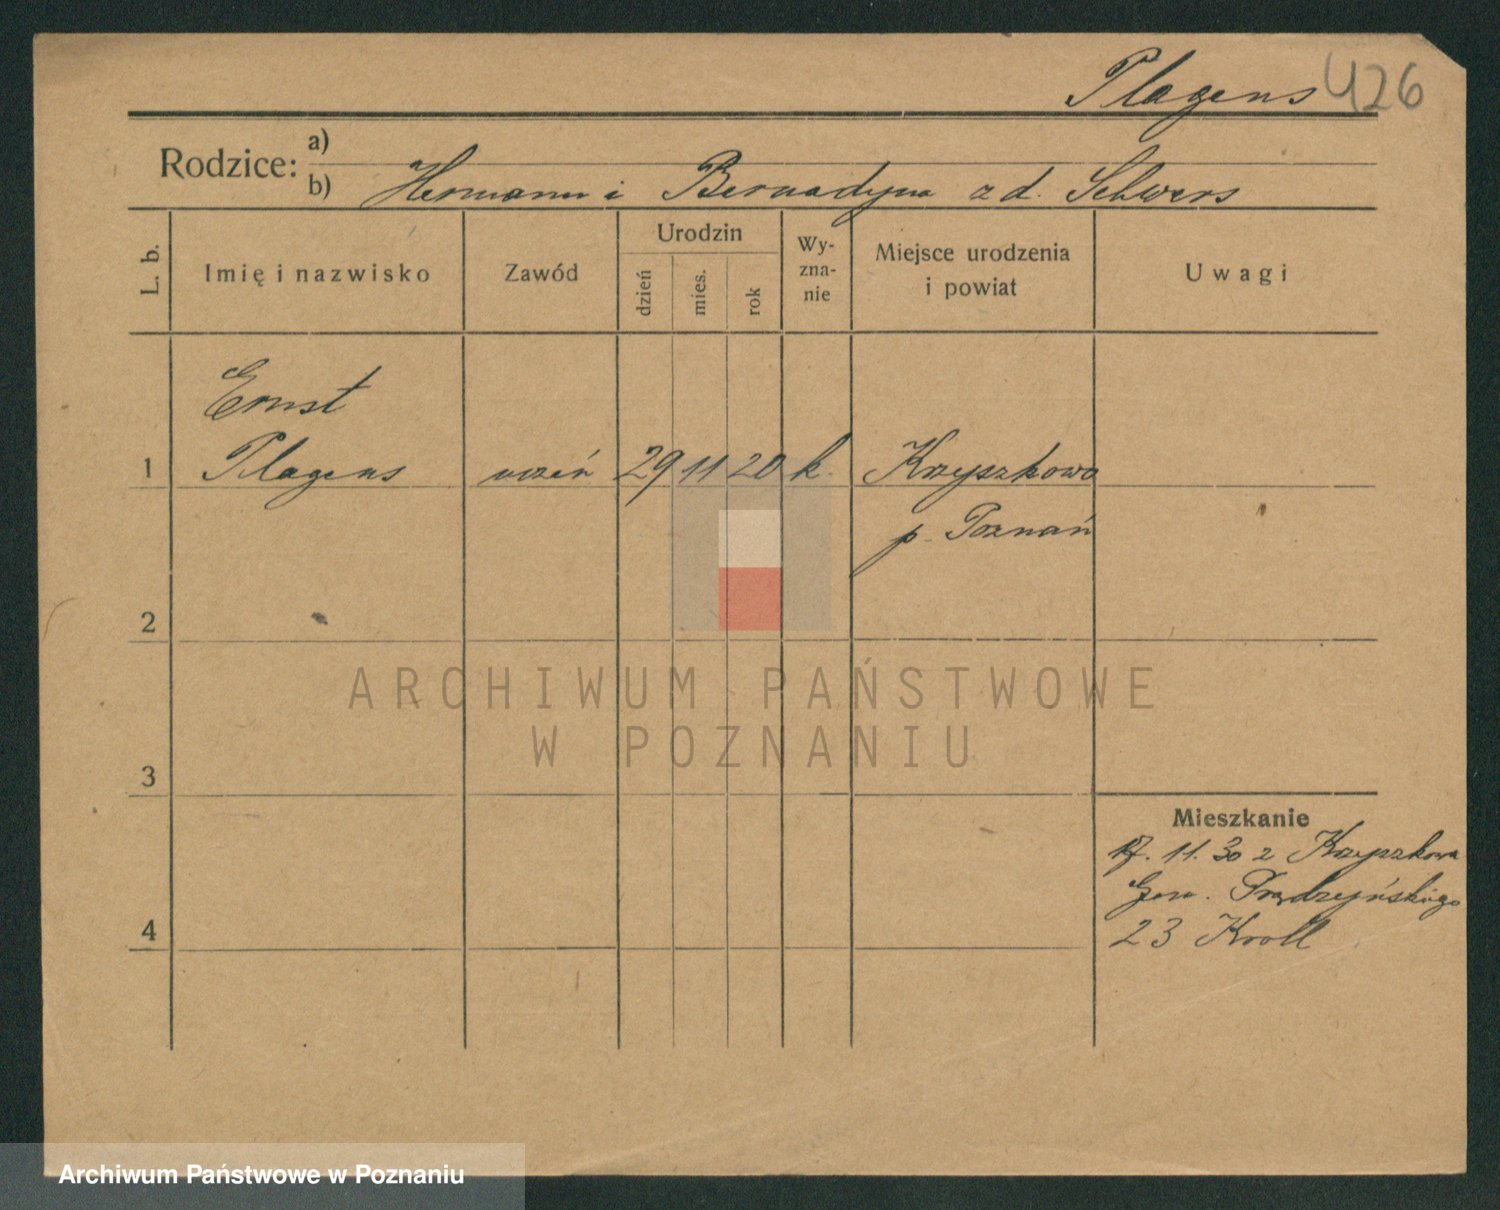 Plagens 426
Rodzice: a)
b) Hermann i Bernadyna z d. Schwers
L. b.
Imię i nazwisko
Zawód
Urodzin
dzień
mies.
rok
Wy-
zna-
nie
Miejsce urodzenia
i powiat
Uwagi
Ernst
1 Plagens uczeń 29 11 20 k. Krzyszkowo
p. Poznań
2
ARCHIWUM PAŃSTWOWE
W POZNANIU
3
Mieszkanie
17. 11. 30 z Krzyszkowa
Gen. Prądzyńskiego
4
23 Kroll
Archiwum Państwowe w Poznaniu